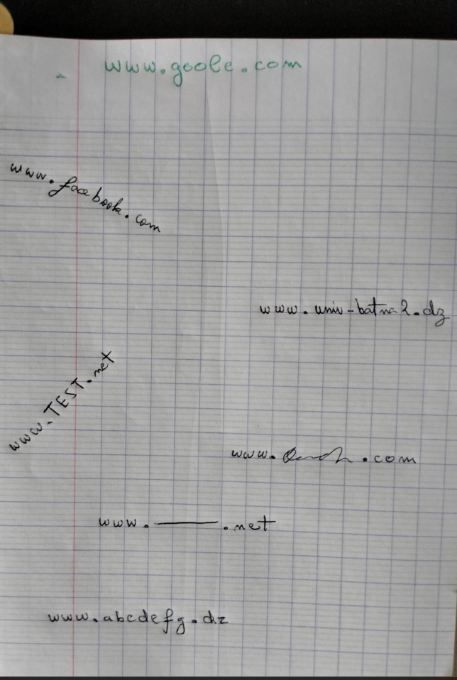 www.goole.com
www.facebook.com
www.univ-batna2.dz
www.TEST.net
www. .com
www.———.net
www.abcdefg.dz